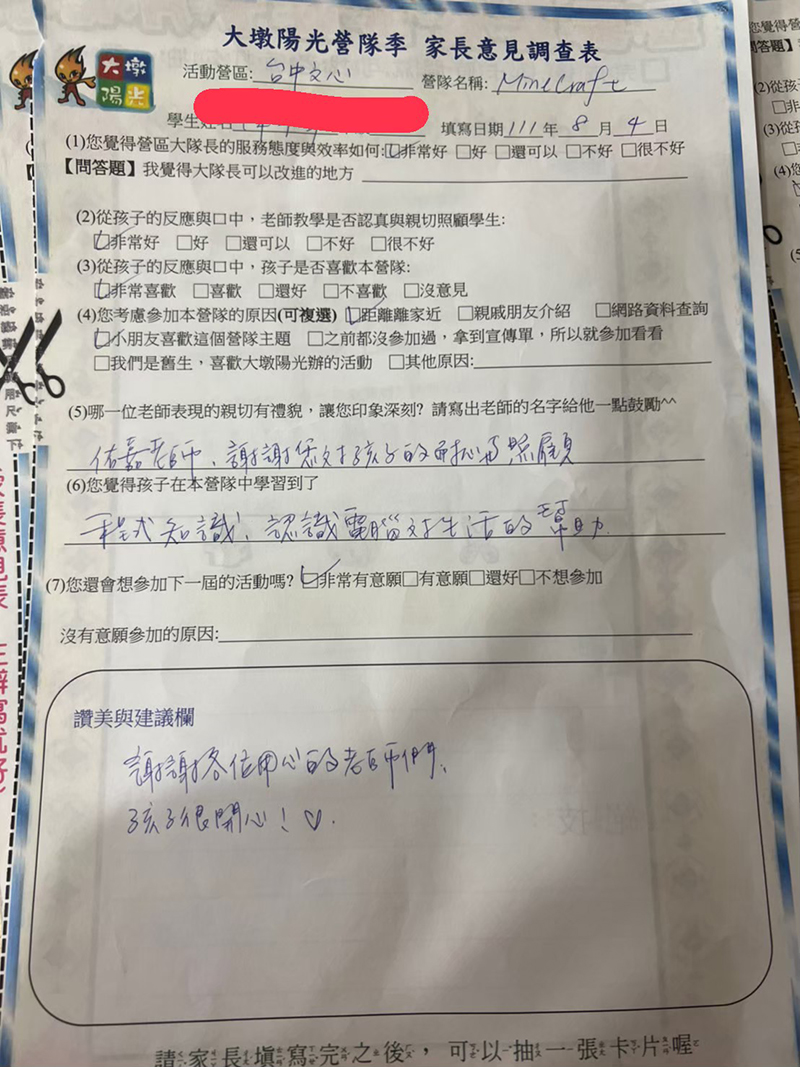 大墩陽光營隊季 家長意見調查表
大墩
陽光
活動營區: 台中文心 營隊名稱: MineCraft
填寫日期 111 年 8 月 4 日
(1)您覺得營區大隊長的服務態度與效率如何: ☑非常好 □好 □還可以 □不好 □很不好
【問答題】我覺得大隊長可以改進的地方
(2)從孩子的反應與口中，老師教學是否認真與親切照顧學生:
☑非常好 □好 □還可以 □不好 □很不好
(3)從孩子的反應與口中，孩子是否喜歡本營隊:
☑非常喜歡 □喜歡 □還好 □不喜歡 □沒意見
(4)您考慮參加本營隊的原因(可複選) ☑距離離家近 □親戚朋友介紹 □網路資料查詢
☑小朋友喜歡這個營隊主題 □之前都沒參加過，拿到宣傳單，所以就參加看看
□我們是舊生，喜歡大墩陽光辦的活動 □其他原因:
(5)哪一位老師表現的親切有禮貌，讓您印象深刻? 請寫出老師的名字給他一點鼓勵^^
佑嘉老師、謝謝您對孩子的耐心與照顧
(6)您覺得孩子在本營隊中學習到了
程式知識、認識電腦對生活的幫助.
(7)您還會想參加下一屆的活動嗎? ☑非常有意願□有意願□還好□不想參加
沒有意願參加的原因:
讚美與建議欄
謝謝各位用心的老師們、
孩子很開心! ♡.
請家長填寫完之後，可以抽一張卡片喔